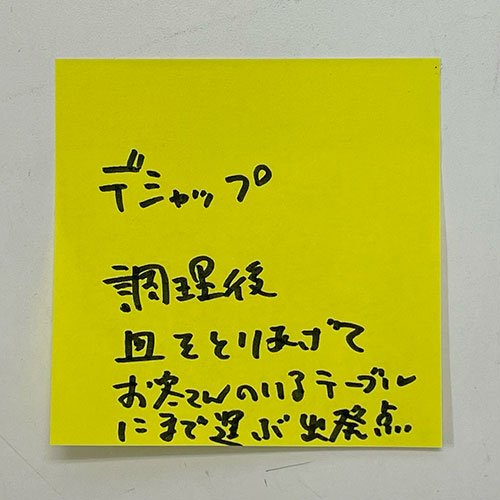 デシャップ
調理後
皿をとりあげて
お客さんのいるテーブル
にまで運ぶ出発点.